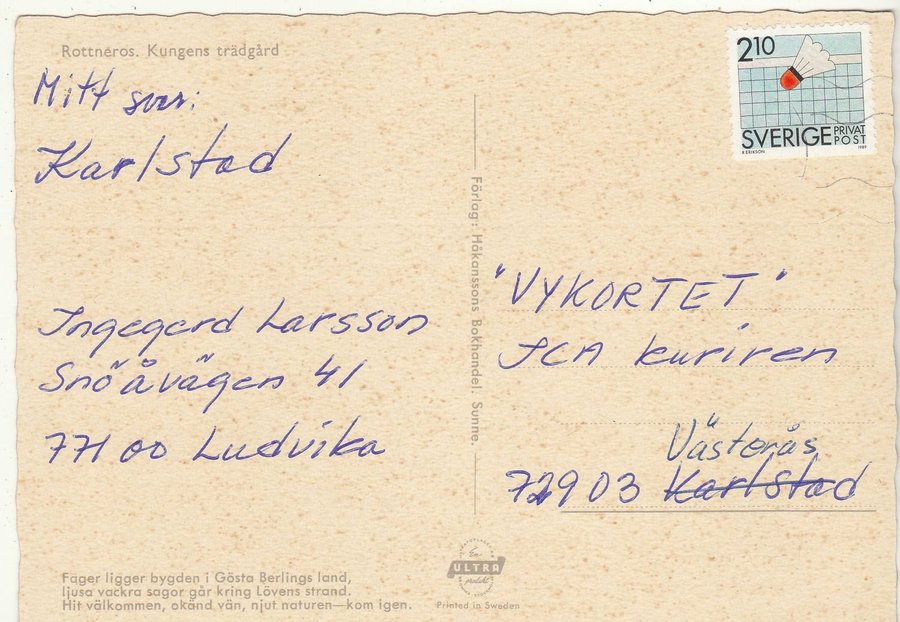 Rottneros. Kungens trädgård
Mitt svar:
Karlstad
Ingegerd Larsson
Snöåvägen 41
771 00 Ludvika
Fager ligger bygden i Gösta Berlings land,
ljusa vackra sagor går kring Lövens strand.
Hit välkommen, okänd vän, njut naturen—kom igen.
Förlag: Håkanssons Bokhandel. Sunne.
En
ULTRA
produkt
Printed in Sweden
210
SVERIGE PRIVAT
POST
R ERIKSON 1989
"VYKORTET"
ICA kuriren
Västerås
72903 Karlstad